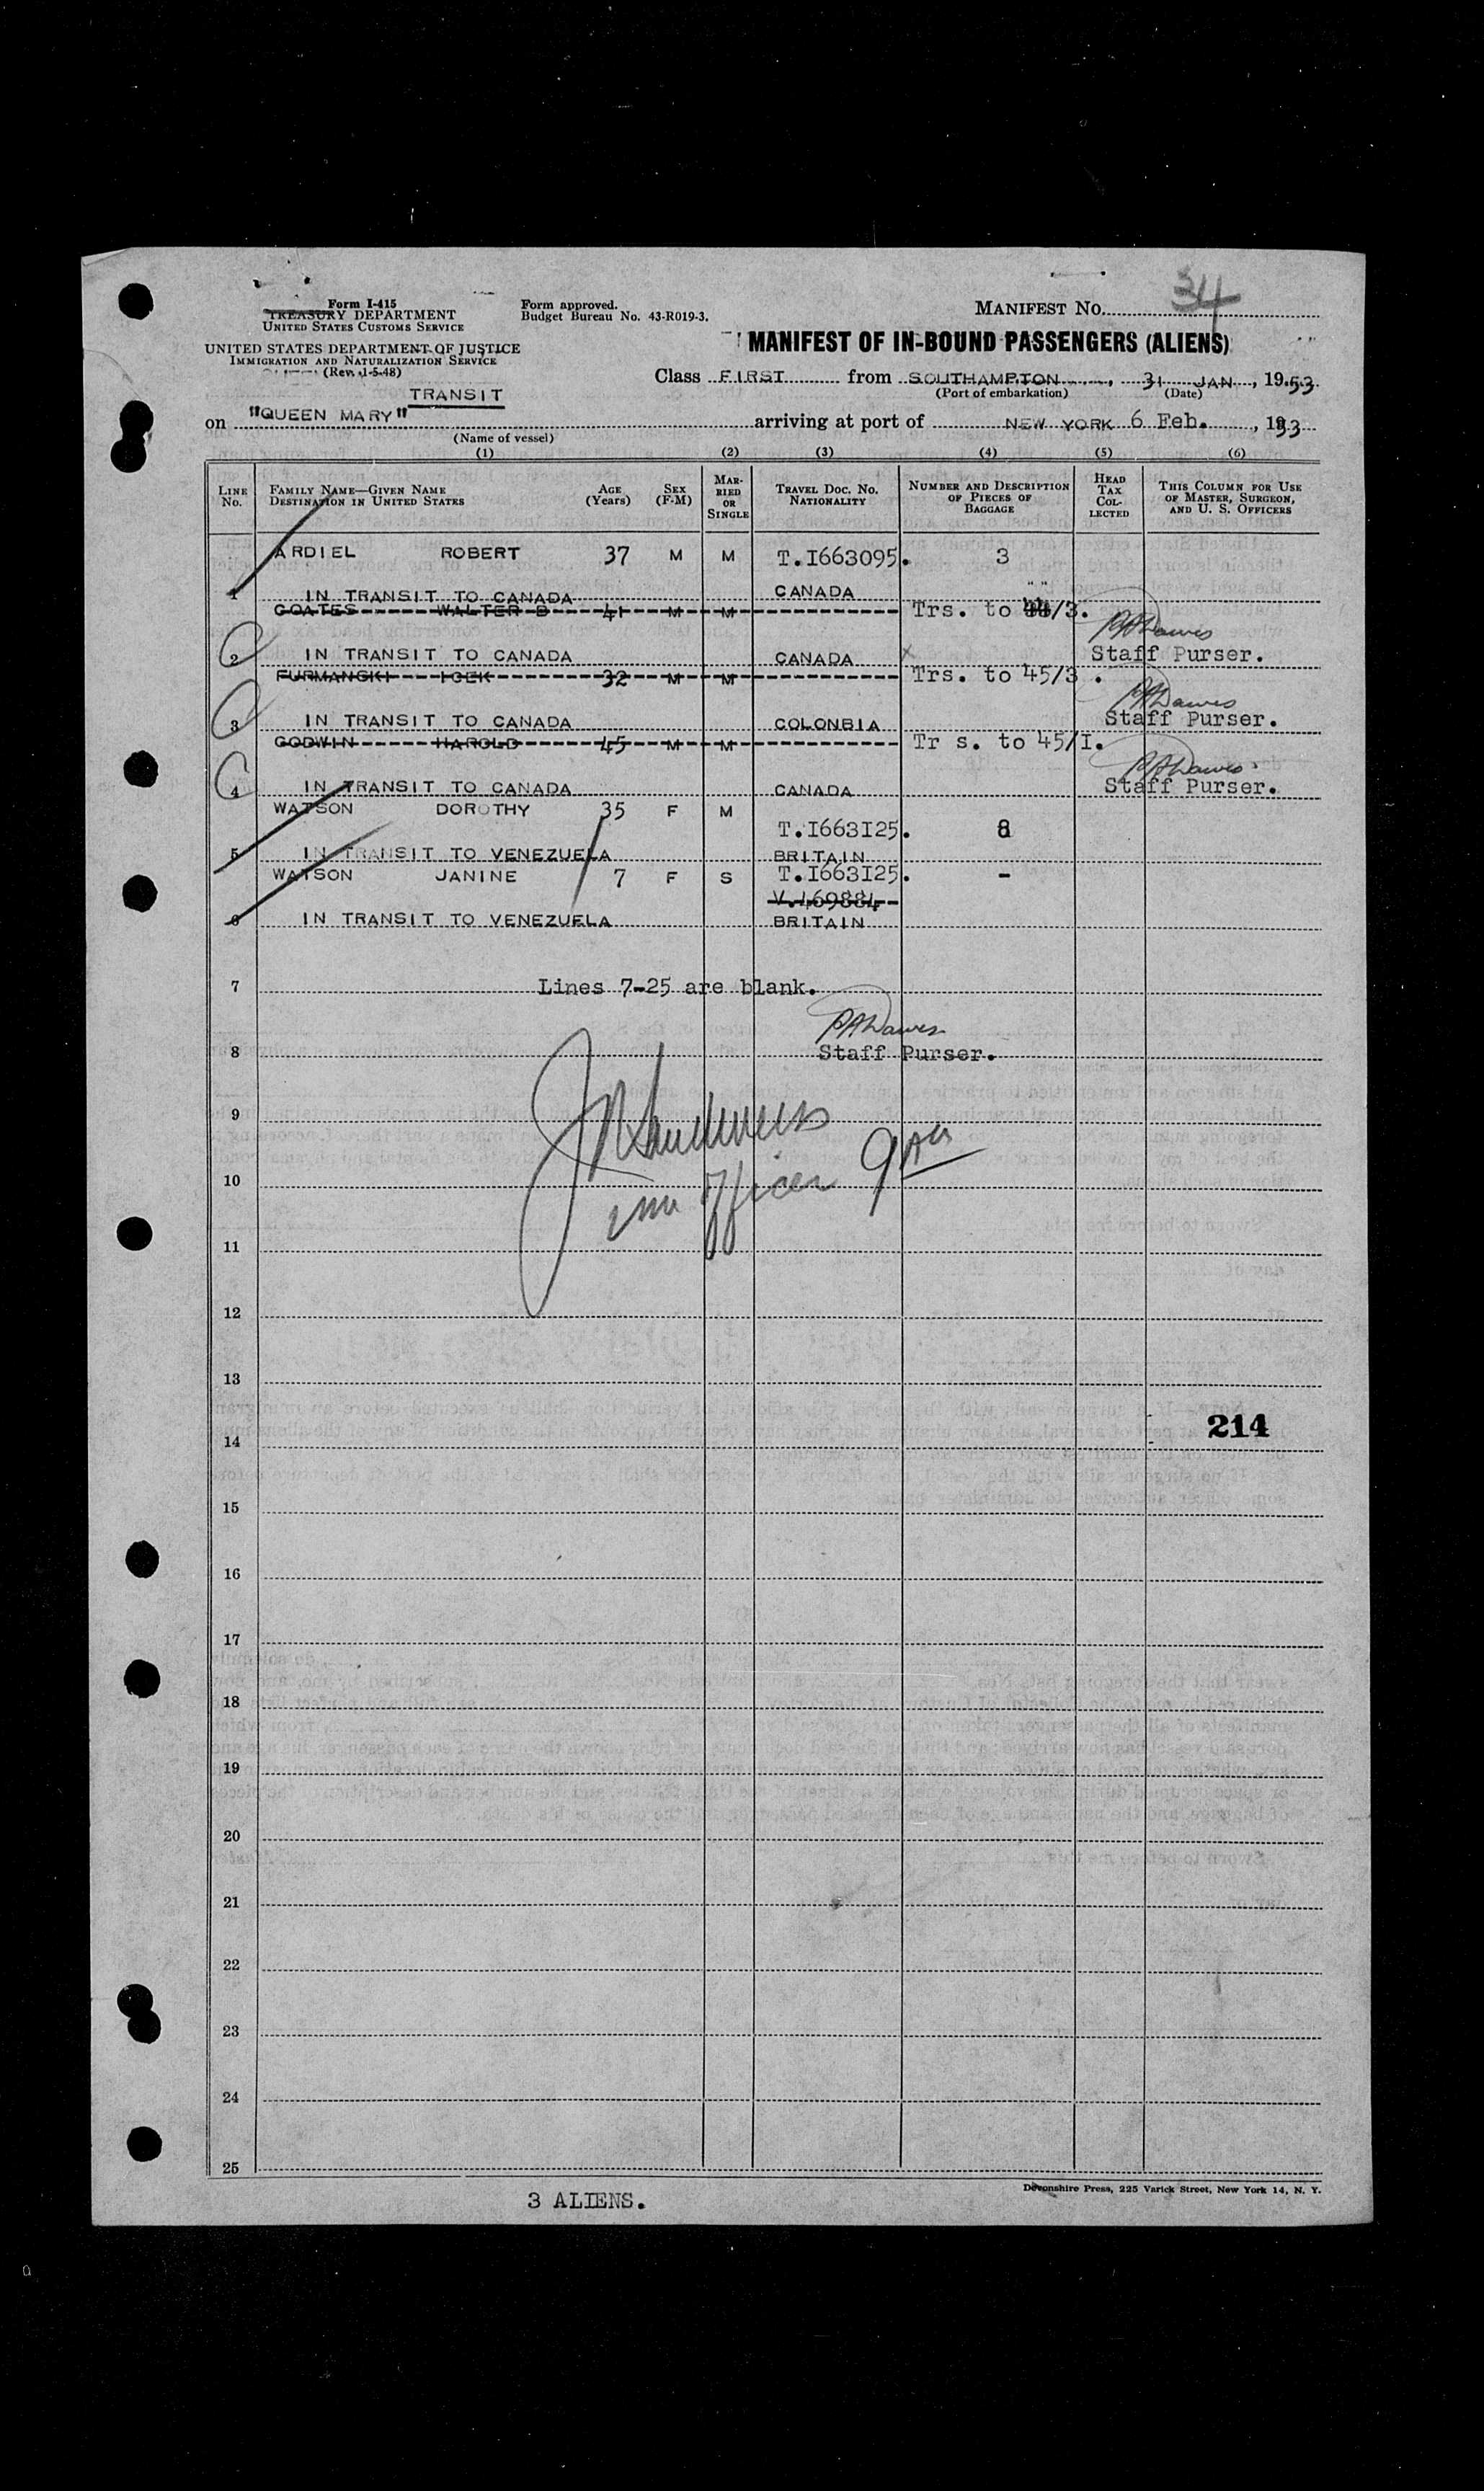 34
Form I-415
TREASURY DEPARTMENT
UNITED STATES CUSTOMS SERVICE
Form approved.
Budget Bureau No. 43-R019-3.
MANIFEST No.
UNITED STATES DEPARTMENT OF JUSTICE
IMMIGRATION AND NATURALIZATION SERVICE
(Rev. 1-5-48)
MANIFEST OF IN-BOUND PASSENGERS (ALIENS)
Class FIRST from SOUTHAMPTON, 31 JAN, 1953
(Port of embarkation) (Date)
TRANSIT
on "QUEEN MARY" arriving at port of NEW YORK 6 Feb., 1953
(Name of vessel)
(1) (2) (3) (4) (5) (6)
LINE No. FAMILY NAME—GIVEN NAME DESTINATION IN UNITED STATES AGE (Years) SEX (F-M) MARRIED OR SINGLE TRAVEL DOC. No. NATIONALITY NUMBER AND DESCRIPTION OF PIECES OF BAGGAGE HEAD TAX COLLECTED THIS COLUMN FOR USE OF MASTER, SURGEON, AND U. S. OFFICERS
ARDIEL ROBERT 37 M M T.I663095. 3
1 IN TRANSIT TO CANADA CANADA
COATES WALTER B 41 M M Trs. to 44/3.
PADawes
2 IN TRANSIT TO CANADA CANADA Staff Purser.
FURMANSKI ICEK 32 M M Trs. to 45/3.
PADawes
3 IN TRANSIT TO CANADA COLONBIA Staff Purser.
GODWIN HAROLD 45 M M Tr s. to 45/I.
PADawes
4 IN TRANSIT TO CANADA CANADA Staff Purser.
WATSON DOROTHY 35 F M T.I663I25. 8
5 IN TRANSIT TO VENEZUELA BRITAIN
WATSON JANINE 7 F S T.I663I25. -
V.469884
6 IN TRANSIT TO VENEZUELA BRITAIN
7 Lines 7-25 are blank.
PADawes
8 Staff Purser.
9
10 Imm Officer
11
12
13
214
14
15
16
17
18
19
20
21
22
23
24
25
3 ALIENS.
Devonshire Press, 225 Varick Street, New York 14, N. Y.